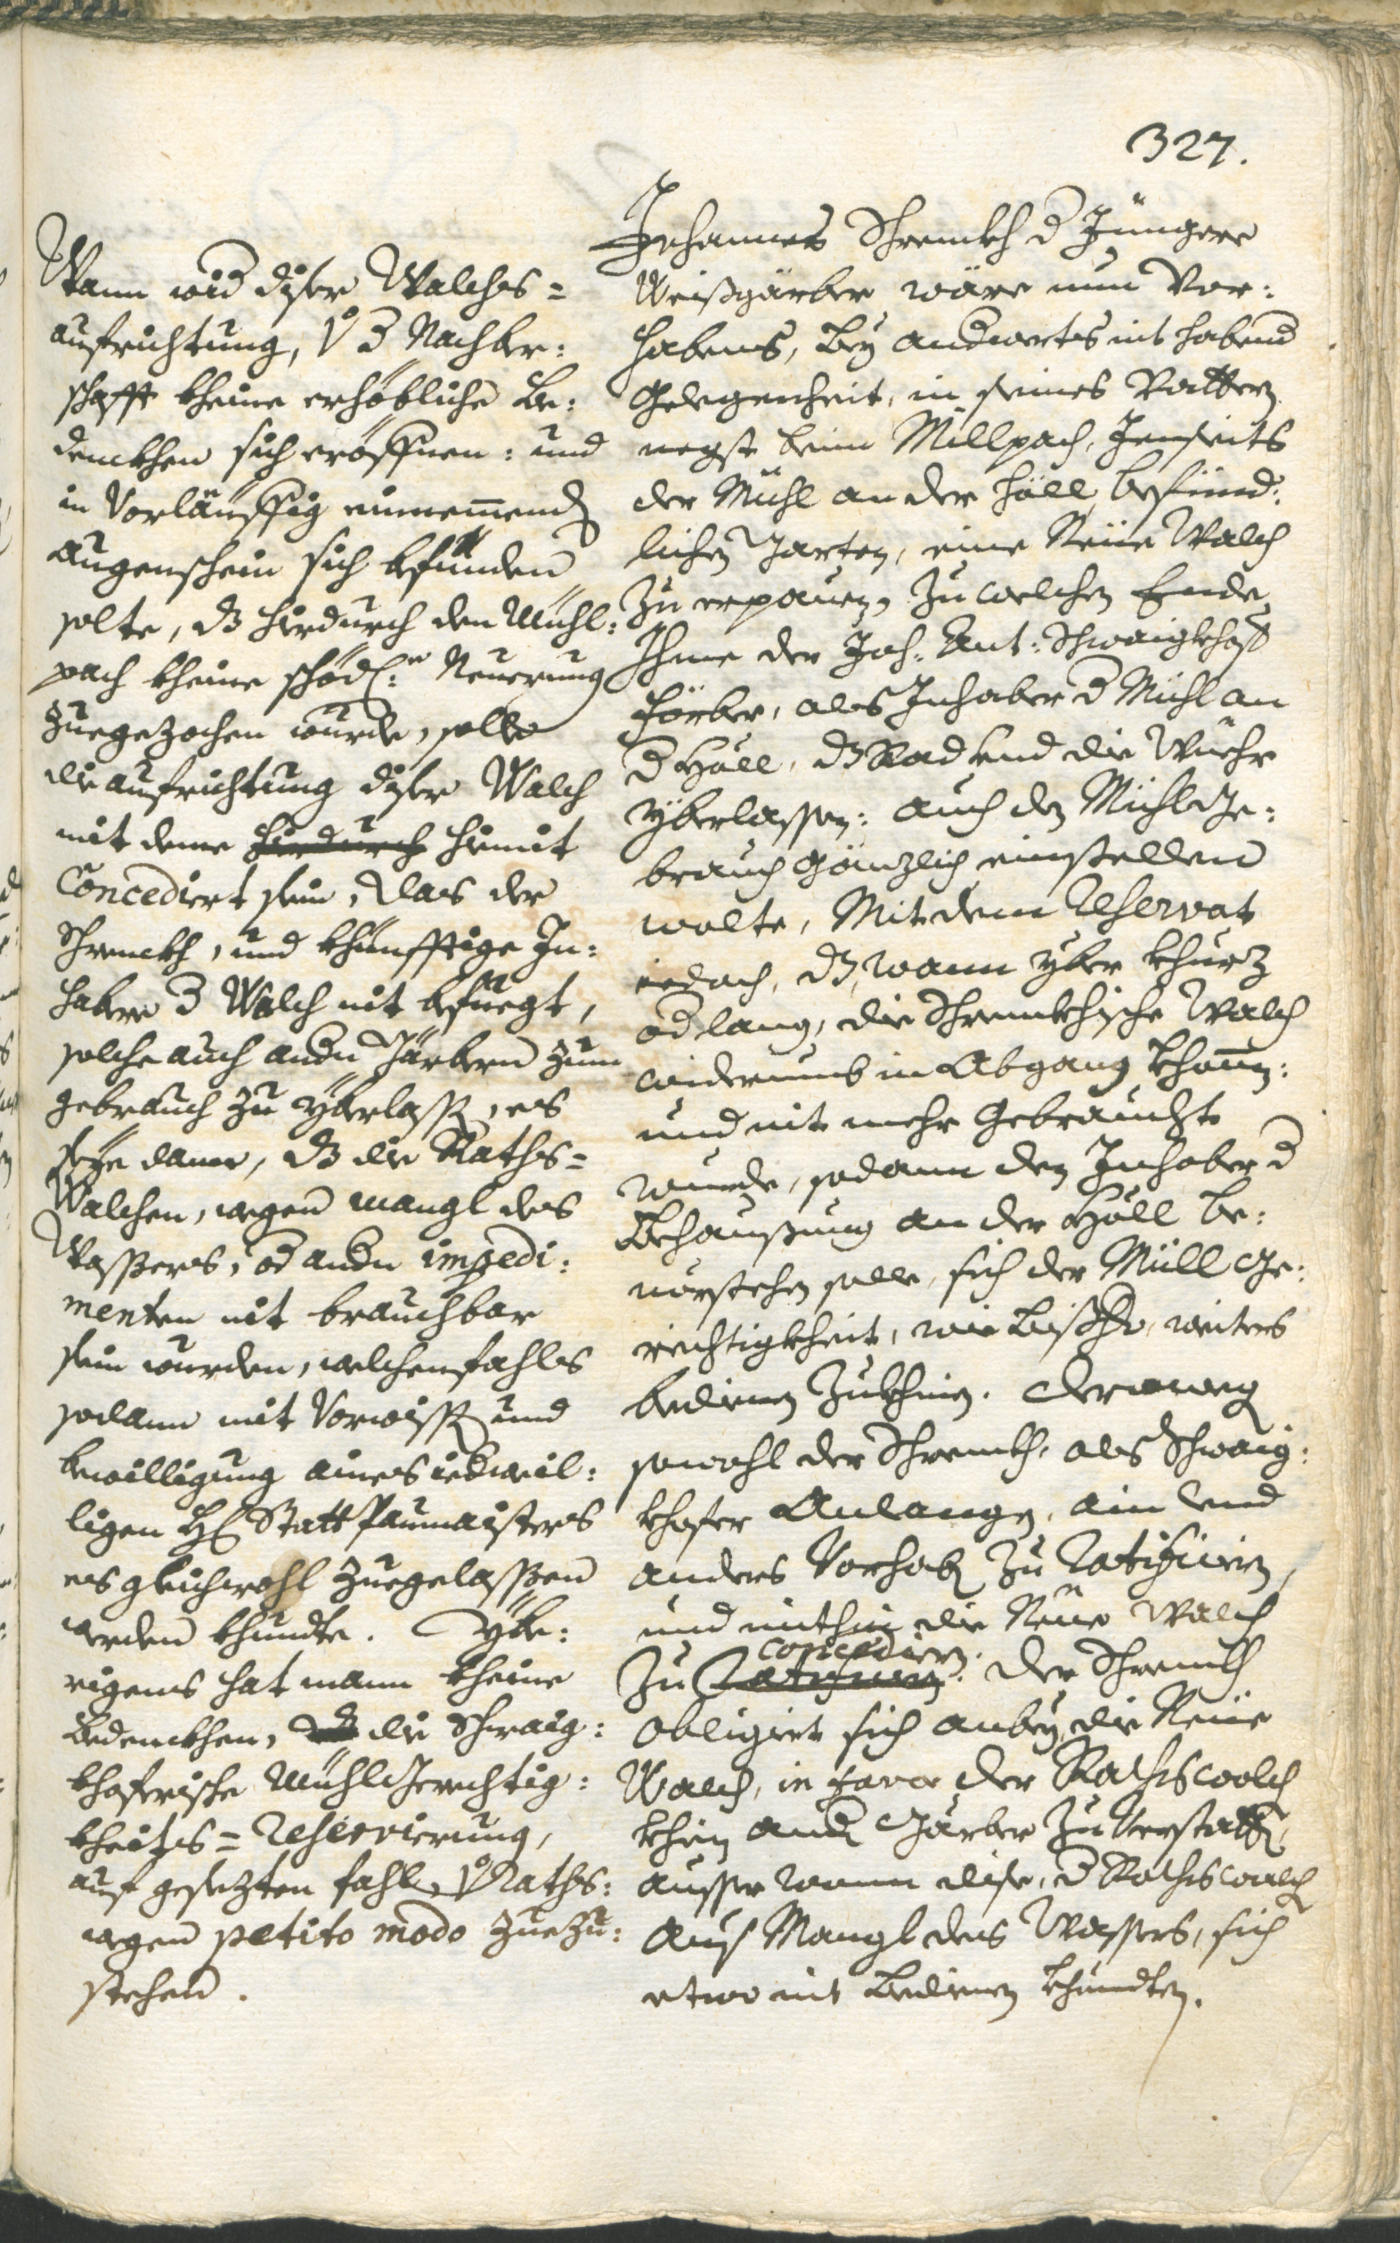 327.
Wann wid diser Walches=
aufrichtung, v. d Nachber:
schafft kheine erhöbliche Be:
denckhen sich eröffnen: und
in Vorläuffig einnemmend
augenschein sich befünden
solte, dz hierdurch den Mühl:
pach kheine schödl: Neuerung
zuegezochen wurde, solle
die aufrichtung diser Walch
mit deme hierdurch hiemit
Concediert sein, das der
Schrenckh, und khünfftige In:
habere d Walch nit befuegt,
solche auch andn Gärbern zum
gebrauch zu yberlassn, es
seye dann, dz die Raths=
Walchen, wegen mangl des
Wassers, od andn impedi:
menten nit brauchbar
sein wurden, welchenfahls
sodann mit Vorwissn und
bewilligung aines iedweil:
ligen H: Statt Paumaisters
es gleichwohl zuegelassen
werden khundte. Ybe:
rigens hat mann kheine
Bedenckhen, die Schwaig:
khoferische Mühlgerechtig:
kheits= reservierung,
auf gesezten fahl, v. Raths:
wegen petito modo zuezu:
stehen.
Johannes Schrenckh d Jüngere
Weißgärber wäre nun Vor:
habens, Bey anderwerts nit habend
Gelegenheit, in seines Vattern
negst beim Millpach, Jenseits
der Mühl an der Höll befünd:
lichen Garten, eine Neüe Walch
zu erpauen, zu welchen Ende
Ihme der Joh: Ant: Schwaigkhofer
Förber, als Inhaber d Mühl an
d Höll, dz Rad und die Wuehr
yberlassen: auch den Mühl Ge:
brauch Gänzlich einstellen
wolte, Mit dem Reservat
iedoch, dz, wann yber khurz
od lang, die Schrenckhische Walch
widerumb in Abgang khommen:
und nit mehr Gebrauchte
wurde, sodann den Inhaber d
Behaußung an der Höll be:
uorstehen solle, sich der Müll Ge:
rechtigkheit, wie Bißhero, weiters
bedienen zukhinen. Derowegen
sowohl der Schrenckh, als Schwaig:
khofer Anlangen, ain und
anders Vorhaben zu ratificiern,
und mithin die Neüe Walch
concediern.
zu ratificiern. Der Schrenckh
obligiert sich anbey, die Neüe
Walch, in favor der Rathswalch
khein andn Gärber zu Verstatten,
ausser wann dise, d Rathswalch
Aus Mangl des Wassers, sich
etwo nit Bedienen khundten.